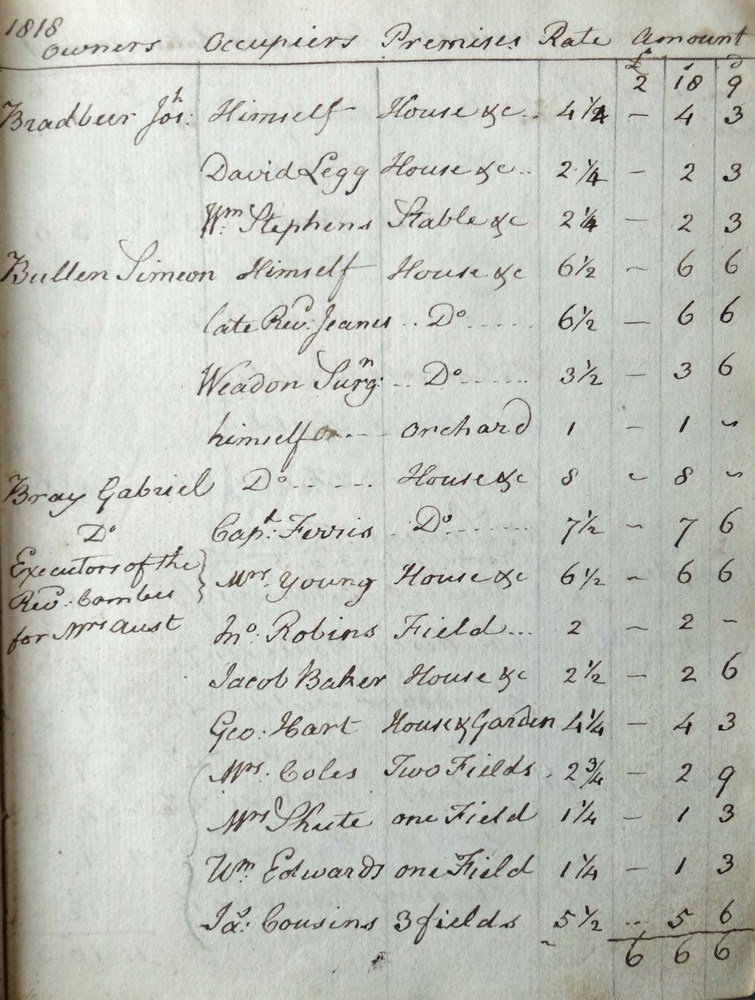 1818
Owners Occupiers Premises Rate Amount
£ s d
2 18 9
Bradbeer Jos:h Himself House &c.. 4 1/4 - 4 3
David Legg House &c.. 2 1/4 - 2 3
Wm: Stephens Stable &c 2 1/4 - 2 3
Bullen Simeon Himself House &c 6 1/2 - 6 6
late Revd: Jeanes .. Do ..... 6 1/2 - 6 6
Weadon Surgn: .. Do ...... 3 1/2 - 3 6
himself .... orchard 1 - 1 -
Bray Gabriel Do ...... House &c 8 - 8 -
Do Capt: Ferris .. Do ....... 7 1/2 - 7 6
Executors of the
Revd: Combes } Mrs. Young House &c 6 1/2 - 6 6
for Mrs Aust Jno: Robins Field ... 2 - 2 -
Jacob Baker House &c 2 1/2 - 2 6
Geo: Hart House & Garden 4 1/4 - 4 3
Mrs. Coles Two Fields . 2 3/4 - 2 9
Mrs Shute one Field 1 1/4 - 1 3
Wm: Edwards one Field 1 1/4 - 1 3
Jas: Cousins 3 fields 5 1/2 ... 5 6
6 6 6